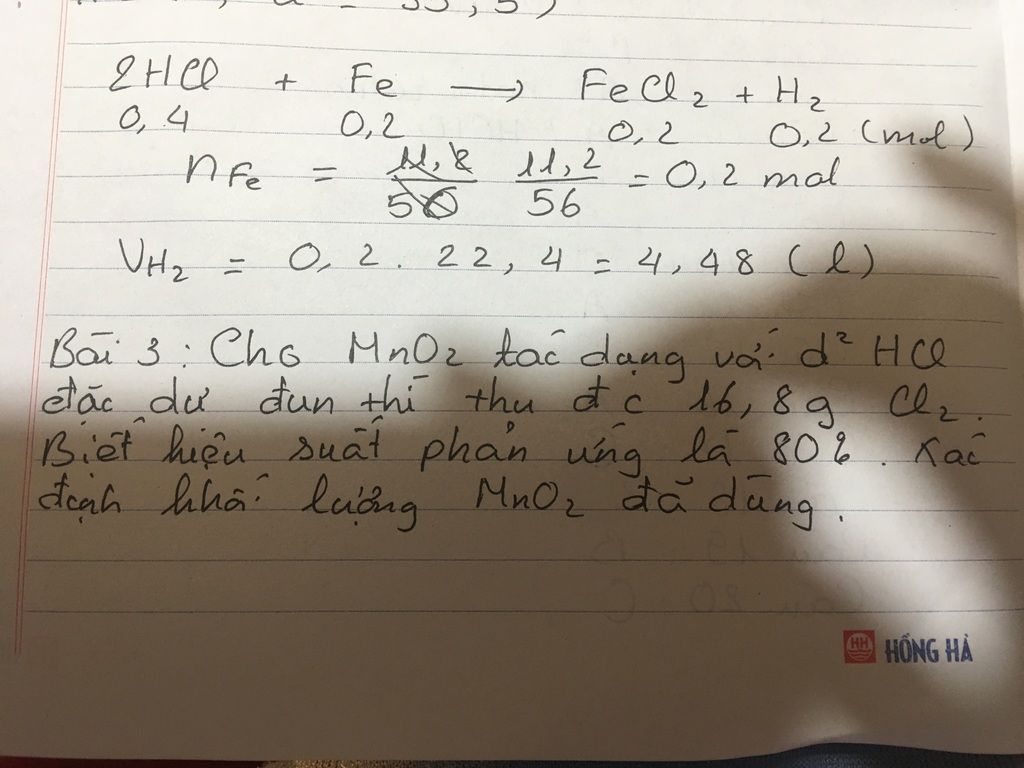 2HCl + Fe → FeCl2 + H2
0,4 0,2 0,2 0,2 (mol)
nFe = 11,2/56 = 0,2 mol
VH2 = 0,2 . 22,4 = 4,48 (l)
Bài 3 : Cho MnO2 tác dụng với d² HCl
đặc dư đun thì thu đc 16,8g Cl2.
Biết hiệu suất phản ứng là 80%. Xác
định khối lượng MnO2 đã dùng.
HH HỒNG HÀ